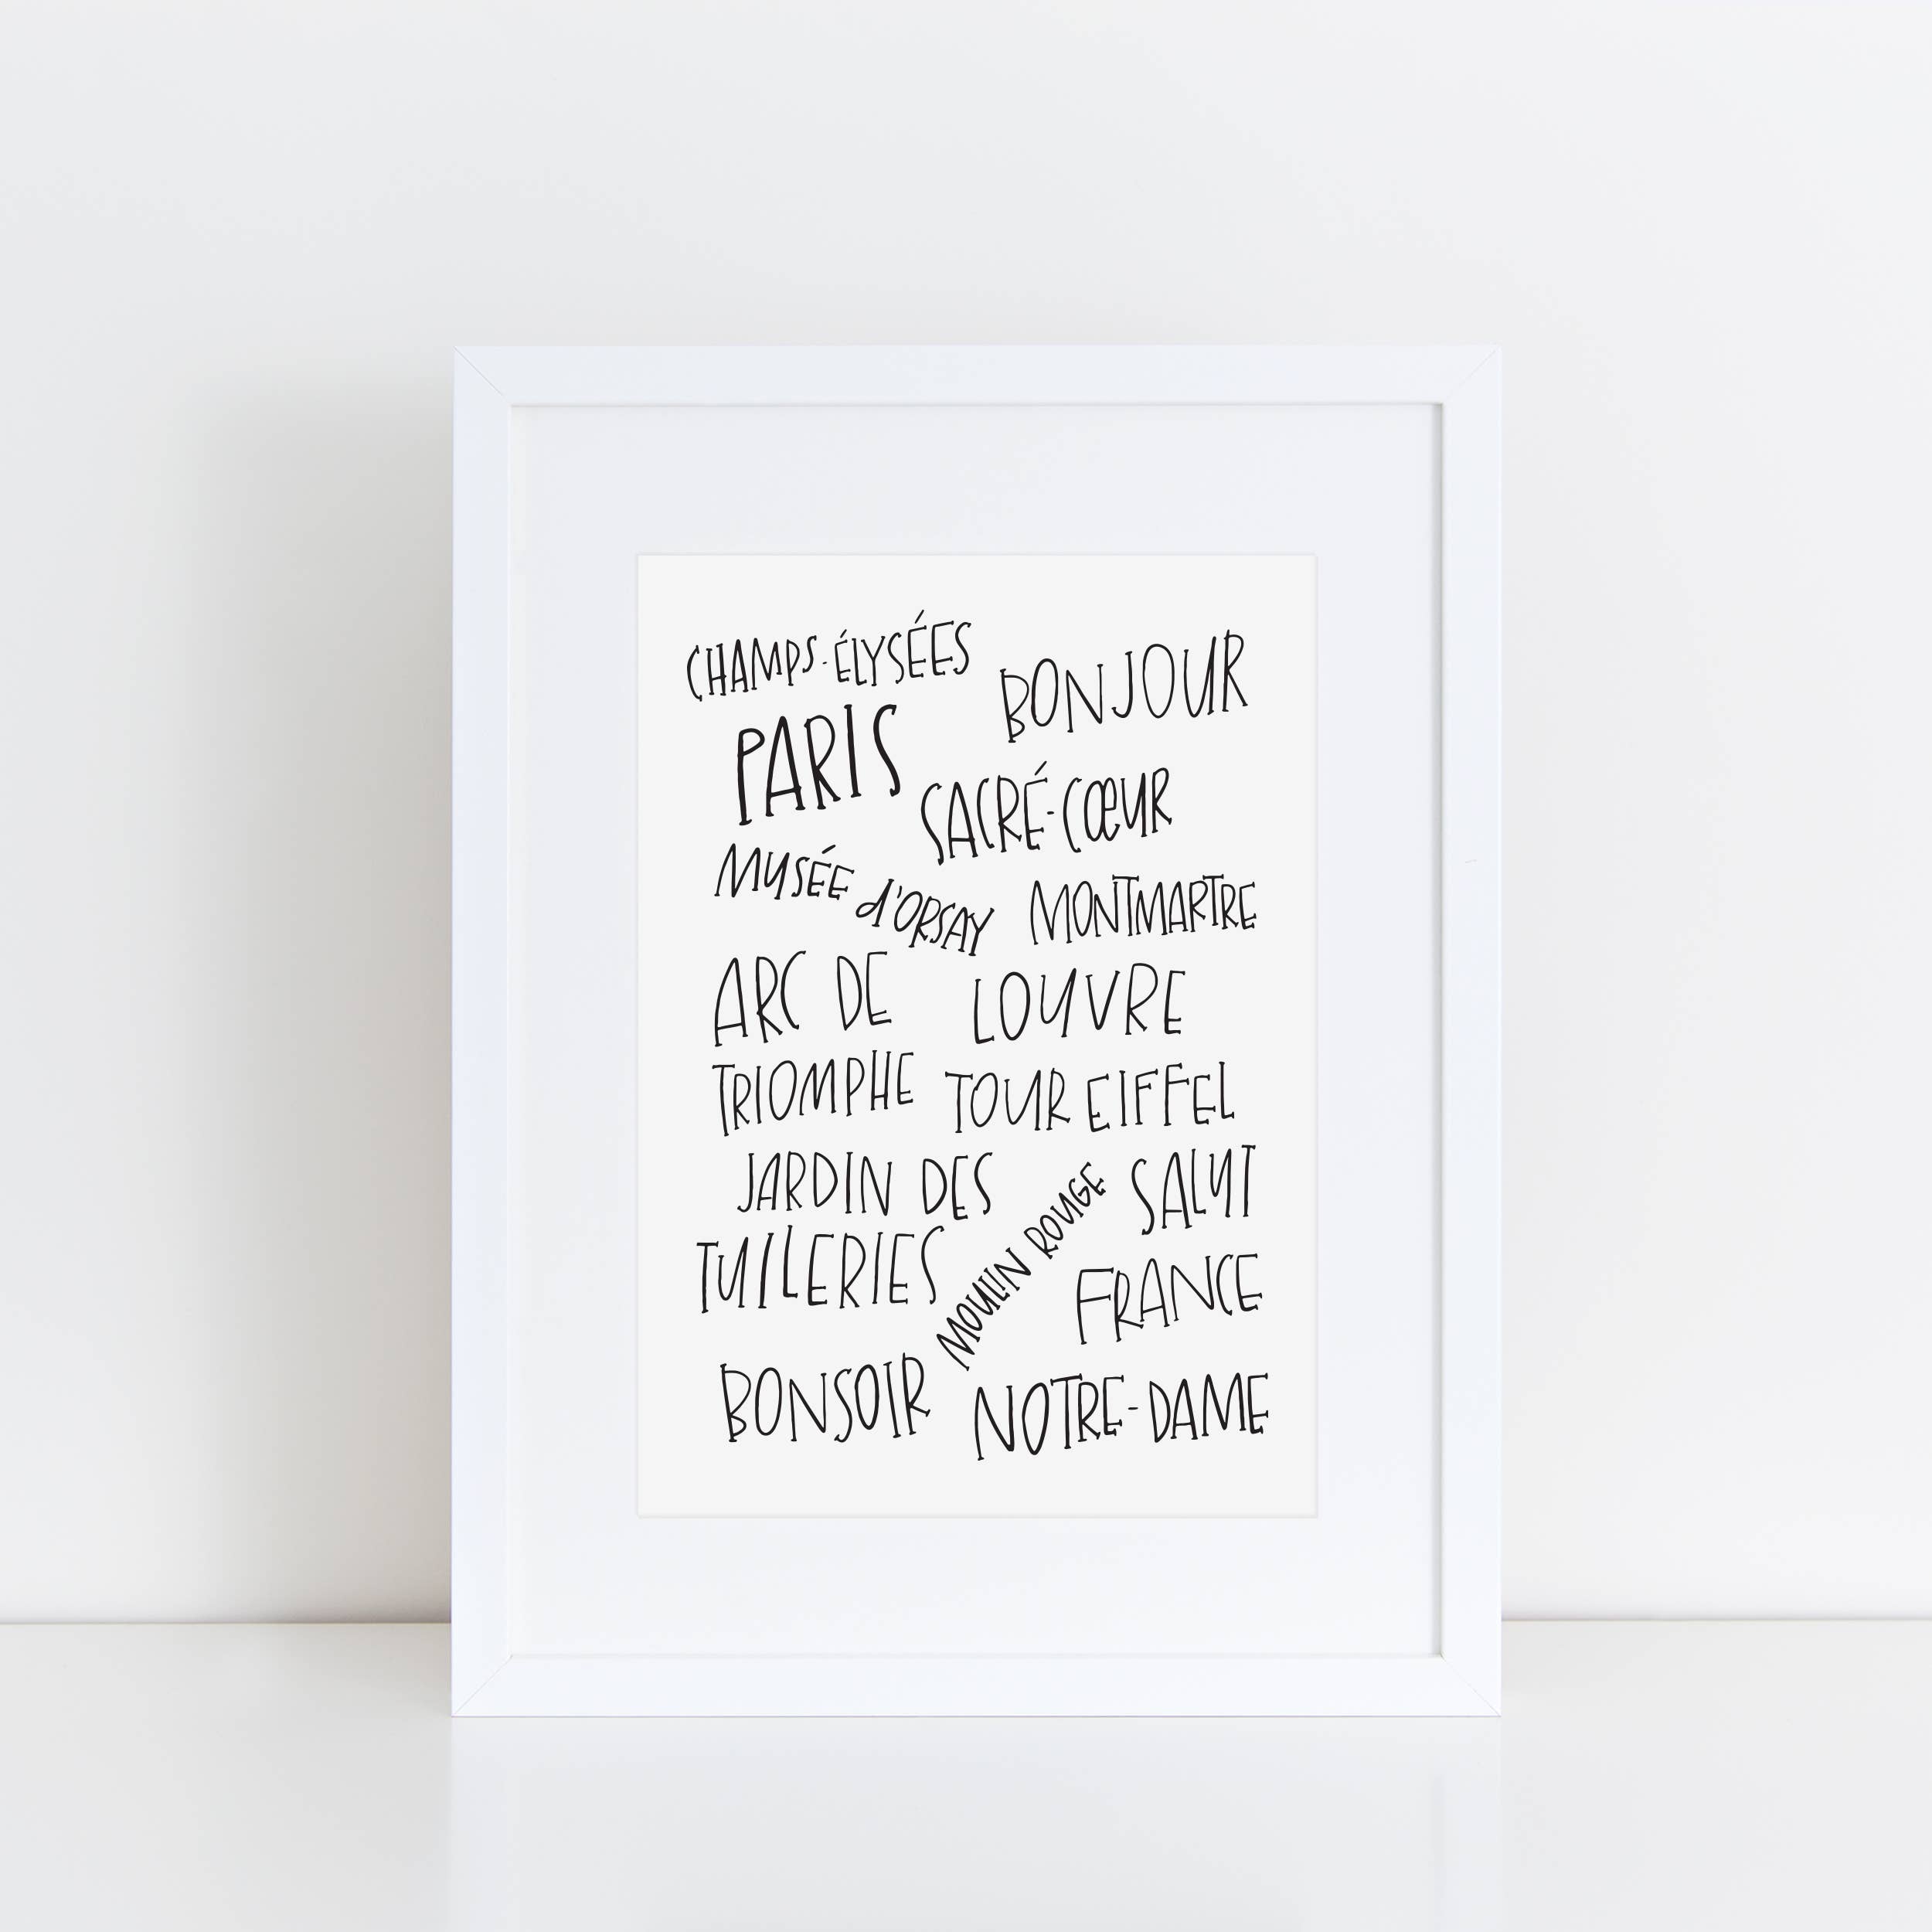 CHAMPS-ÉLYSÉES
BONJOUR
PARIS
SACRÉ-CŒUR
MUSÉE d'ORSAY
MONTMARTRE
ARC DE
TRIOMPHE
LOUVRE
TOUR EIFFEL
JARDIN DES
TUILERIES
MOULIN ROUGE
SALUT
FRANCE
BONSOIR
NOTRE-DAME